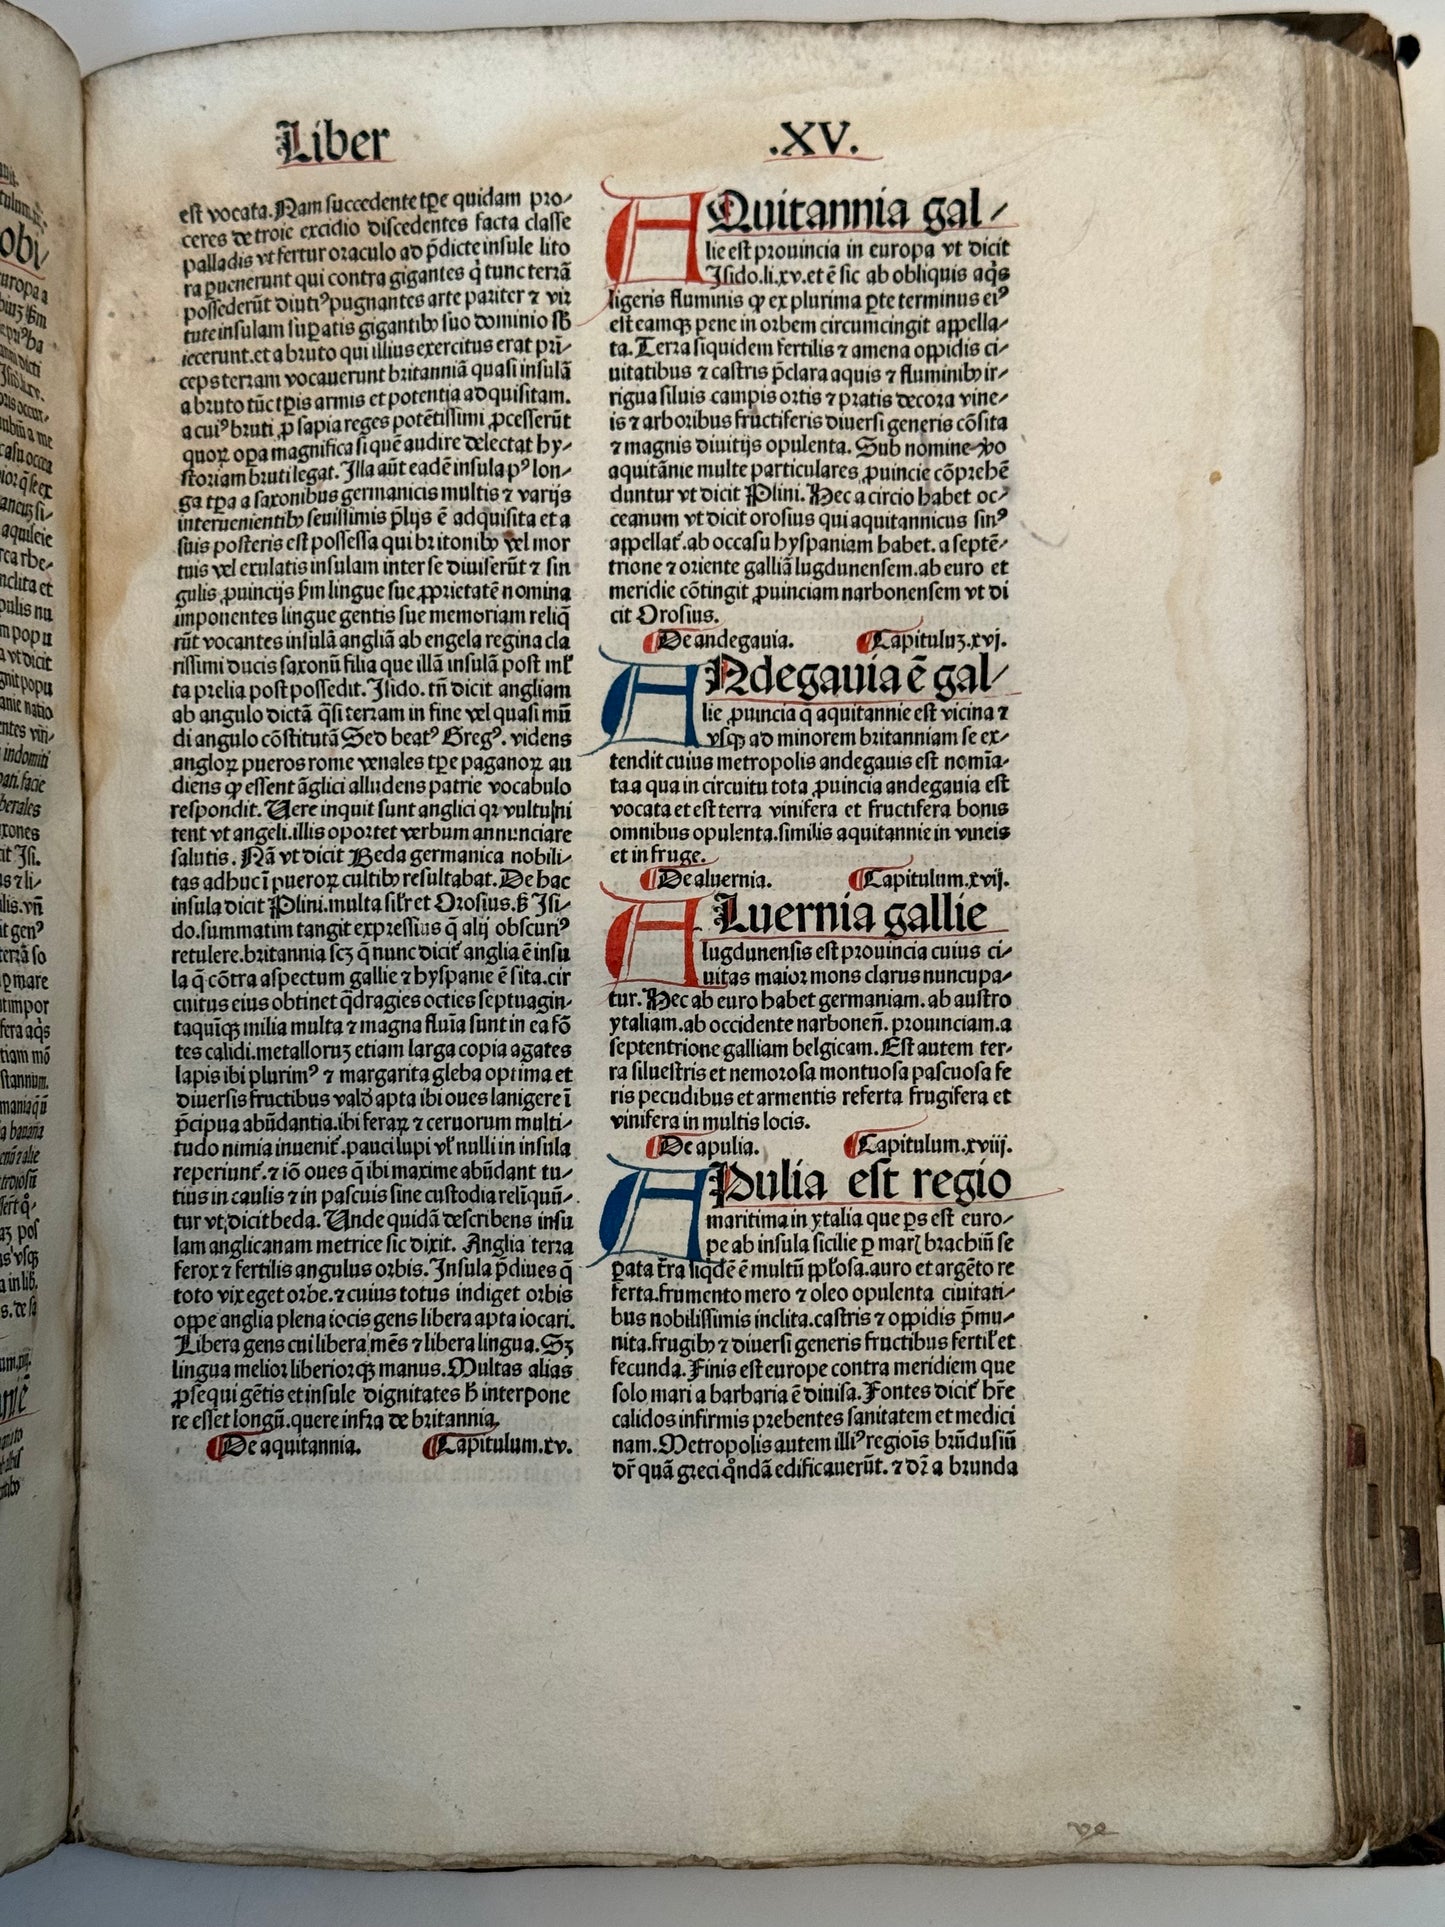 Liber
.XV.
est vocata. Nam succedente tꝑe quidam pro⸗
ceres de troie excidio discedentes facta classe
palladis vt fertur oraculo ad p̄dicte insule lito
ra ꝑuenerunt qui contra gigantes q̇ tunc terrā
possederūt diutiꝰ pugnantes arte pariter ⁊ vir
tute insulam suꝑatis gigantibꝰ suo dominio sb̄
iecerunt. et a bruto qui illius exercitus erat prī⸗
ceps terram vocauerunt britanniā quasi insulā
a bruto tūc tꝑis armis et potentia adquisitam.
a cuiꝰ bruti ꝓsapia reges potētissimi ꝓcesserūt
quoꝝ oꝑa magnifica si quē audire delectat hy⸗
storiam bruti legat. Illa aūt eadē insula pꝰ lon⸗
ga tꝑa a saxonibus germanicis multis ⁊ varijs
interuenientibꝰ seuissimis p̄lijs ē adquisita et a
suis posteris est possessa qui britonibꝰ vel mor
tuis vel exulatis insulam inter se diuiserūt ⁊ sin
gulis ꝓuincijs ẜm lingue sue ꝓprietatē nomina
imponentes lingue gentis sue memoriam reliq̄
rūt vocantes insulā angliā ab engela regina cla
rissimi ducis saxonū filia que illā insulā post ml̄
ta prelia post possedit. Isido. tn̄ dicit angliam
ab angulo dictā q̄si terram in fine vel quasi mū
di angulo cōstitutā Sed beatꝰ Gregꝰ. videns
angloꝝ pueros rome venales tꝑe paganoꝝ au
diens ꝙ essent āglici alludens patrie vocabulo
respondit. Uere inquit sunt anglici qꝛ vultu ni
tent vt angeli. illis oportet verbum annunciare
salutis. Nā vt dicit Beda germanica nobili⸗
tas adhuc ī pueroꝝ cultibꝰ resultabat. De hac
insula dicit Plini. multa silr̄ et Orosius. ẜ Isi⸗
do. summatim tangit expressius q̄ alij obscuriꝰ
retulere. britannia scꝫ q̄ nunc dicit᷑ anglia ē insu
la q̄ cōtra aspectum gallie ⁊ hyspanie ē sita. cir
cuitus eius obtinet q̄dragies octies septuagin⸗
taquīqꝫ milia multa ⁊ magna flūia sunt in ea fō
tes calidi. metalloruꝫ etiam larga copia agates
lapis ibi plurimꝰ ⁊ margarita gleba optima et
diuersis fructibus valď apta ibi oues lanigere ī
p̄cipua abūdantia. ibi feraꝝ ⁊ ceruorum multi⸗
tudo nimia inuenit᷑. pauci lupi vl̄ nulli in insula
reperiunt᷑. ⁊ iō oues q̄ ibi maxime abūdant tu⸗
tius in caulis ⁊ in pascuis sine custodia relīquū⸗
tur vt dicit beda. Unde quidā describens insu
lam anglicanam metrice sic dixit. Anglia terra
ferox ⁊ fertilis angulus orbis. Insula p̄diues q̄
toto vix eget orbe. ⁊ cuius totus indiget orbis
oppe anglia plena iocis gens libera apta iocari.
Libera gens cui libera mēs ⁊ libera lingua. Sꝫ
lingua melior liberiorqꝫ manus. Multas alias
ꝓsequi gētis et insule dignitates h̄ interpone
re esset longū. quere infra de britannia.
De aquitannia. Capitulum.xv.
AQuitannia gal⸗
lie est prouincia in europa vt dicit
Isido. li. xv. et ē sic ab obliquis aq̄s
ligeris fluminis ꝙ ex plurima ꝑte terminus eiꝰ
est eamqꝫ pene in orbem circumcingit appella⸗
ta. Terra siquidem fertilis ⁊ amena oppidis ci⸗
uitatibus ⁊ castris p̄clara aquis ⁊ fluminibꝰ ir⸗
rigua siluis campis ortis ⁊ pratis decora vine⸗
is ⁊ arboribus fructiferis diuersi generis cōsita
⁊ magnis diuitijs opulenta. Sub nomine vo
aquitānie multe particulares ꝓuincie cōprehē
duntur vt dicit Plini. Hec a circio habet oc⸗
ceanum vt dicit orosius qui aquitannicus sinꝰ
appellat᷑. ab occasu hyspaniam habet. a septē⸗
trione ⁊ oriente galliā lugdunensem. ab euro et
meridie cōtingit ꝓuinciam narbonensem vt di
cit Orosius.
De andegauia. Capituluꝫ.xvj.
ANdegauia ē gal⸗
lie ꝓuincia q̄ aquitannie est vicina ⁊
vsqꝫ ad minorem britanniam se ex⸗
tendit cuius metropolis andegauis est nomīa⸗
ta a qua in circuitu tota ꝓuincia andegauia est
vocata et est terra vinifera et fructifera bonis
omnibus opulenta. similis aquitannie in vineis
et in fruge.
De aluernia. Capitulum.xvij.
ALuernia gallie
lugdunensis est prouincia cuius ci⸗
uitas maior mons clarus nuncupa⸗
tur. Hec ab euro habet germaniam. ab austro
ytaliam. ab occidente narbonen̄. prouinciam. a
septentrione galliam belgicam. Est autem ter⸗
ra siluestris et nemorosa montuosa pascuosa fe
ris pecudibus et armentis referta frugifera et
vinifera in multis locis.
De apulia. Capitulum.xviij.
APulia est regio
maritima in ytalia que ꝑs est euro⸗
pe ab insula sicilie ꝑ marꝭ brachiū se
ꝑata tr̄a liqďē ē multū ppl̄osa. auro et argēto re
ferta. frumento mero ⁊ oleo opulenta ciuitati⸗
bus nobilissimis inclita. castris ⁊ oppidis p̄mu⸗
nita. frugibꝰ ⁊ diuersi generis fructibus fertil̄ et
fecunda. Finis est europe contra meridiem que
solo mari a barbaria ē diuisa. Fontes dicit᷑ hr̄e
calidos infirmis prebentes sanitatem et medici
nam. Metropolis autem illiꝰ regiōis brūdusiū
dr̄ quā greci qͦndā edificauerūt. ⁊ dr̄ a brunda